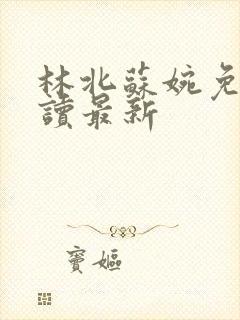 林北蘇婉免
讀最新
竇嫗